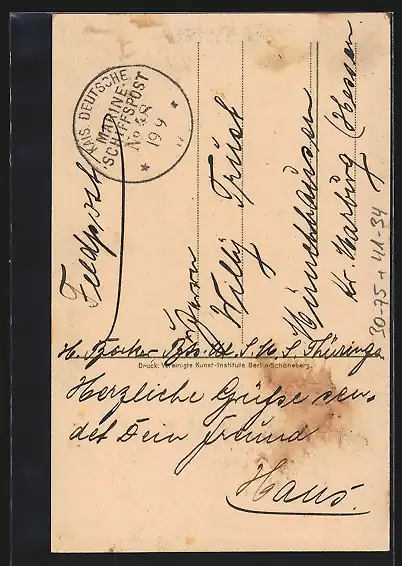 KAIS. DEUTSCHE
MARINE-
SCHIFFSPOST
No 48
19 9
Feldpost
Herrn
Willy Trust
Münchhausen
Kr. Marburg (Hessen
30-75 + 41-34
S. M. S. Thüringen
Druck: Vereinigte Kunst-Institute Berlin-Schöneberg.
Herzliche Grüße sen-
det Dein Freund
Hans.